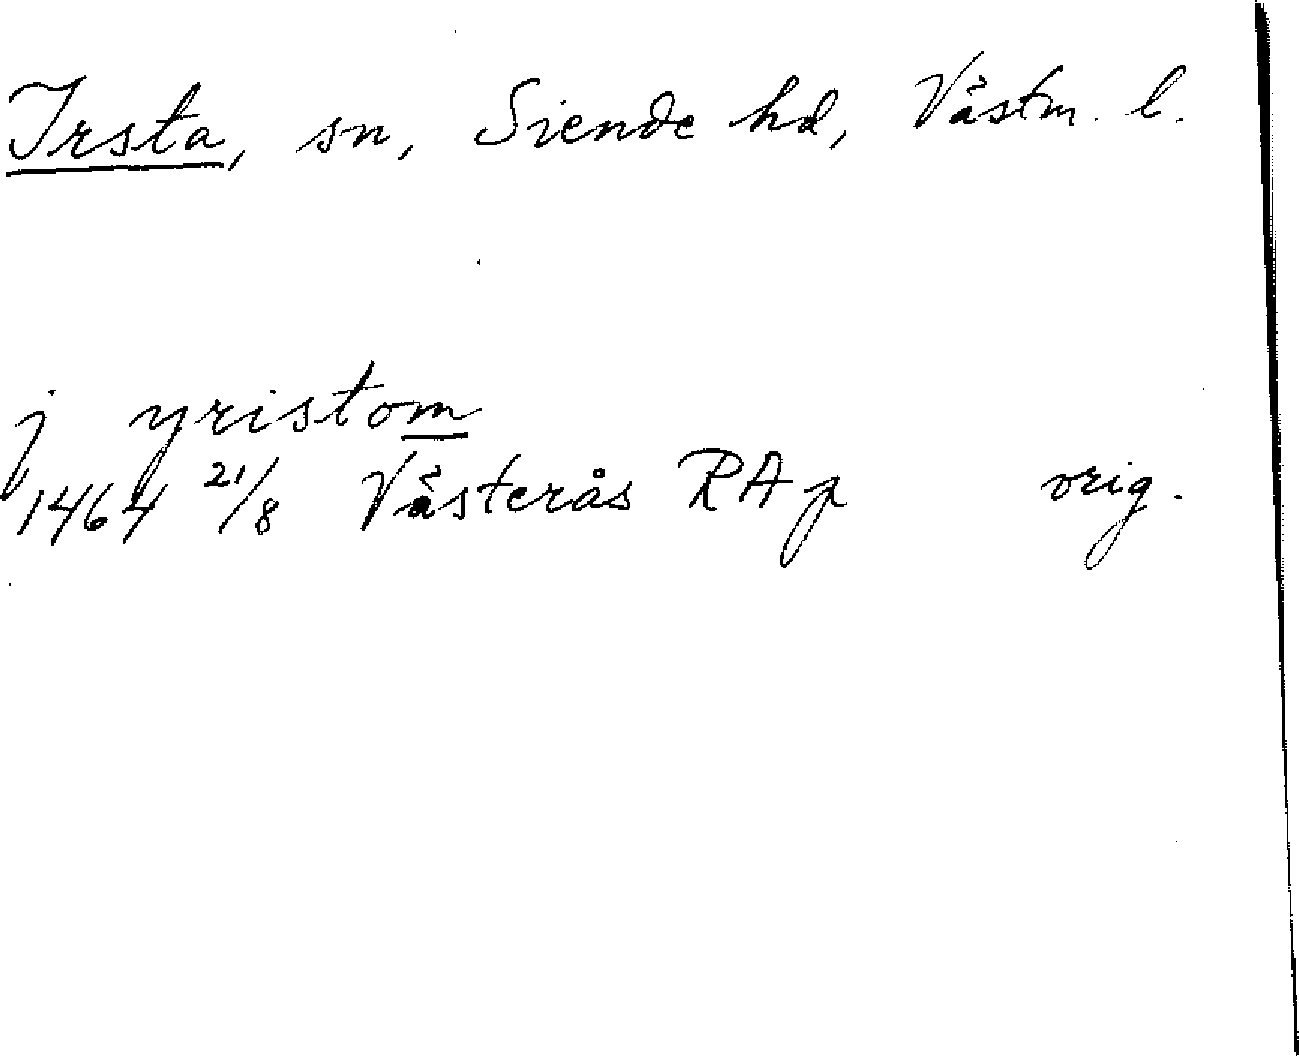 Irsta, sn, Siende hd, Västm. l.
j yristom
1464 21/8 Västerås RAp orig.